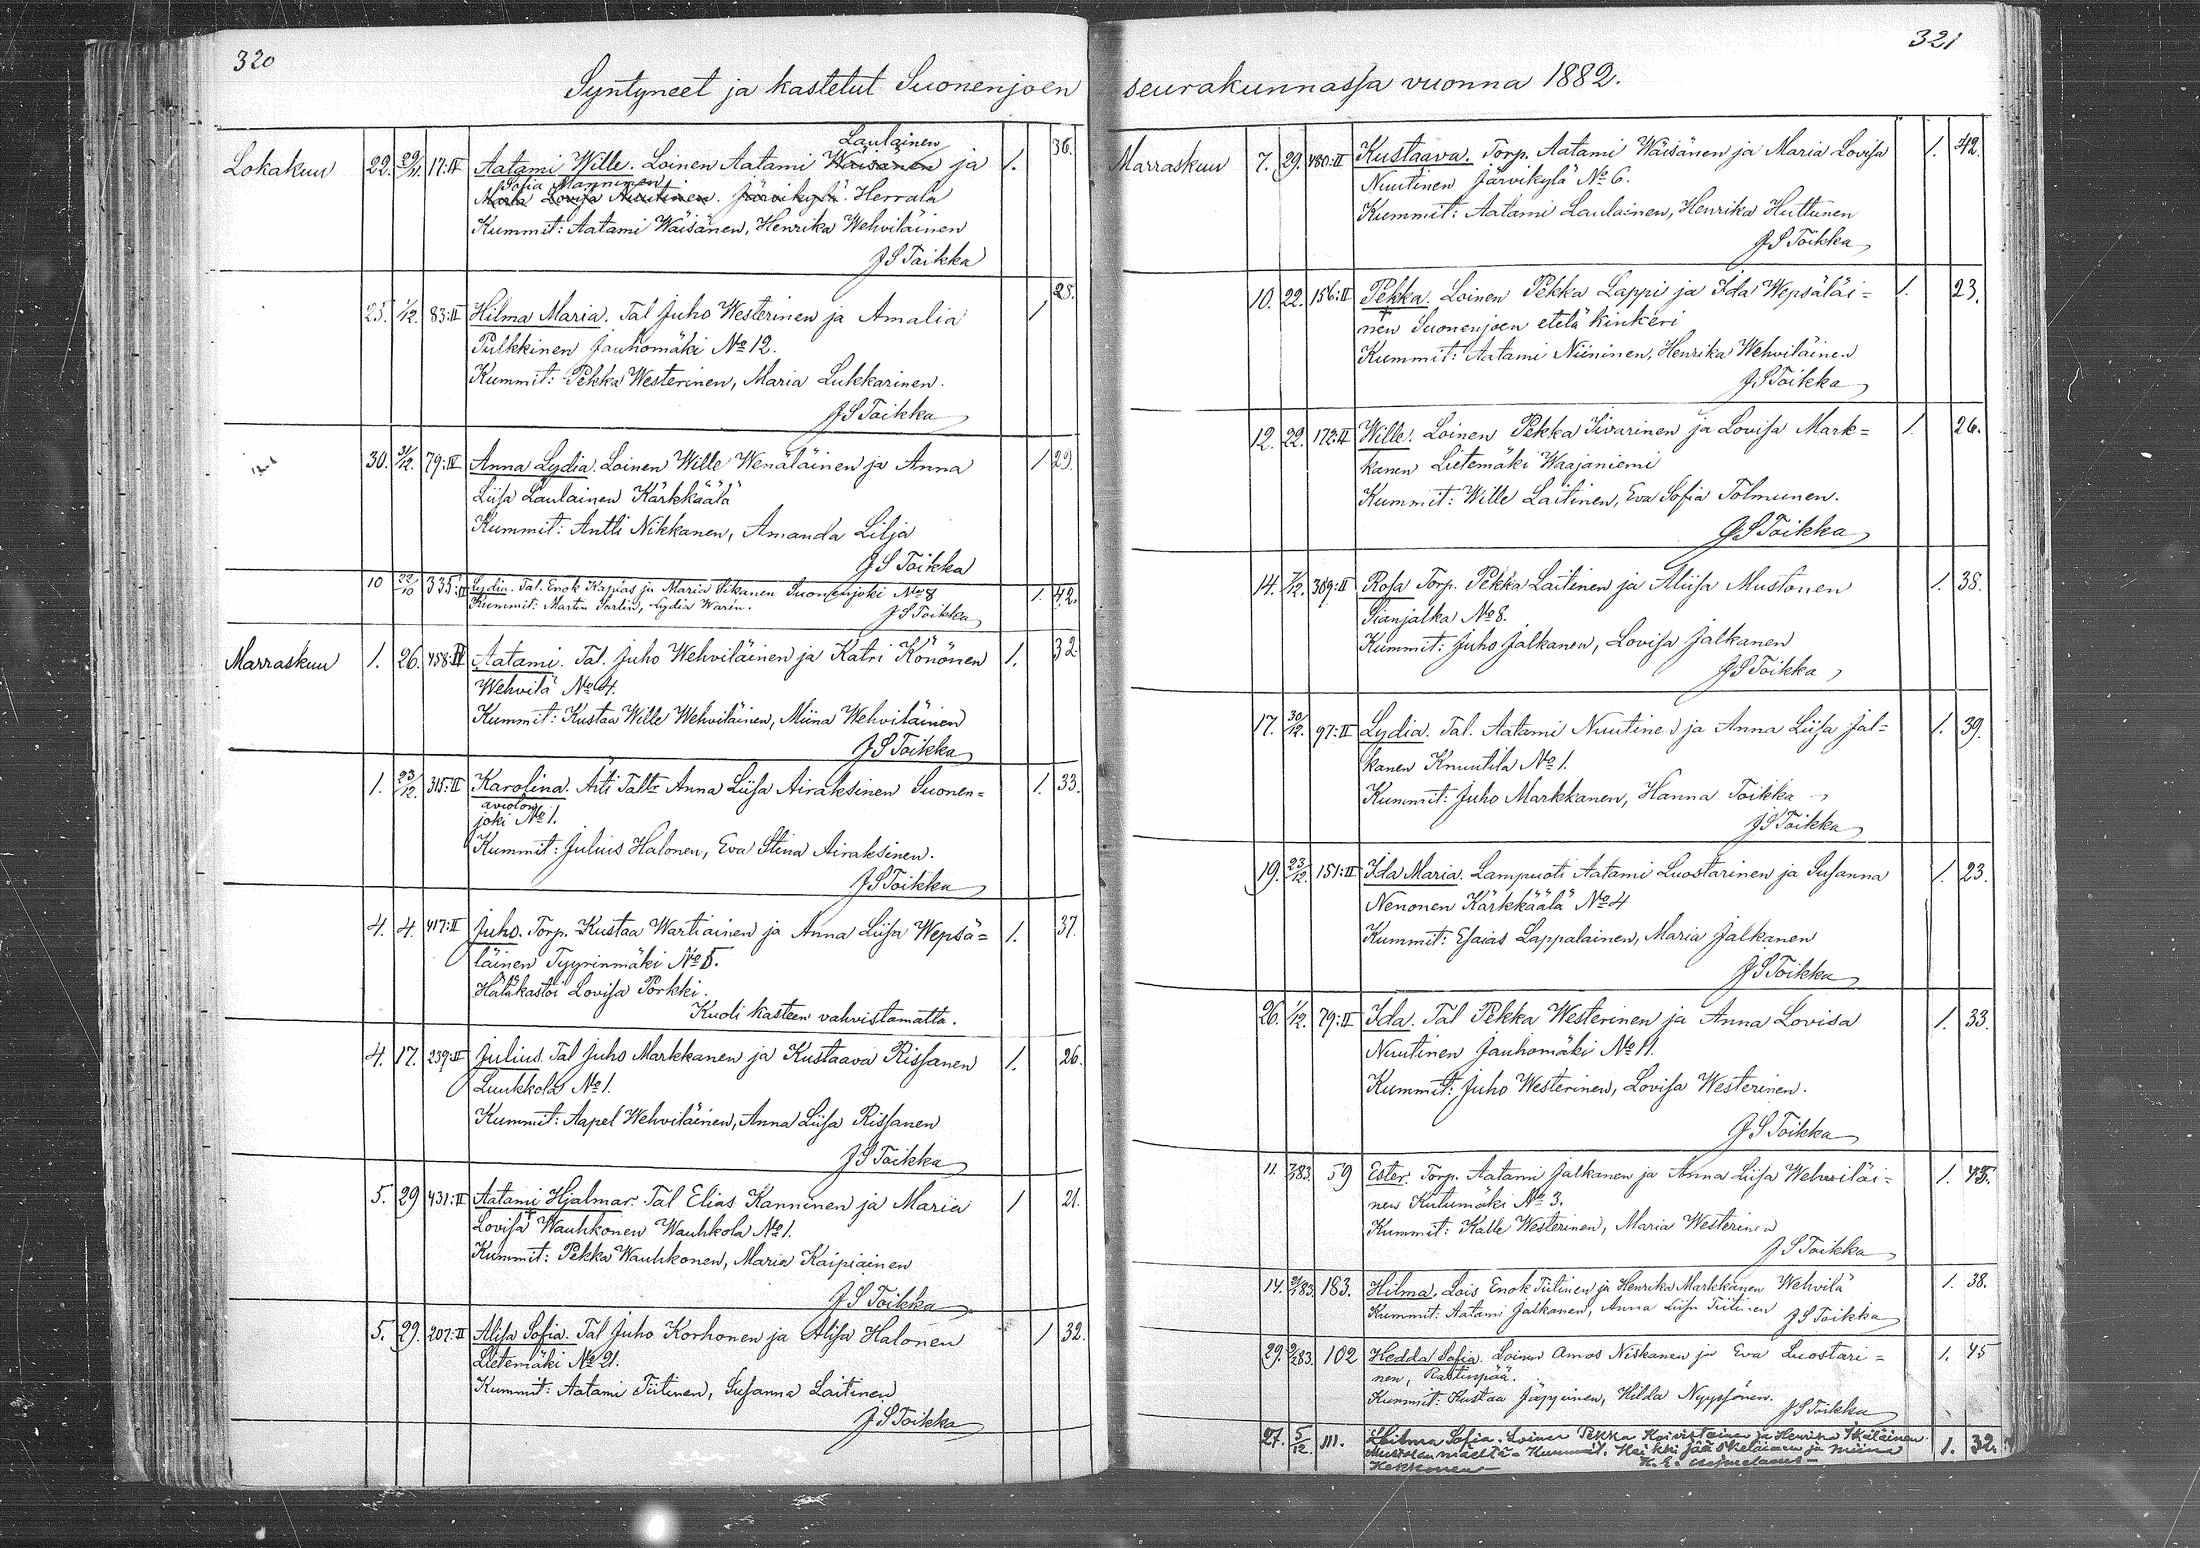 320
Syntyneet ja kastetut Suonenjoen
Laulainen
Lokakuu 22. 29/11. 17:II Aatami Wille. Loinen Aatami Wäisänen ja 1. 36.
Sofia Manninen
Maria Lovisa Nuutinen. Järvikylä. Herrala
Kummit: Aatami Wäisänen, Henrika Wehviläinen
J S Toikka
25. 1/12. 83:II Hilma Maria. Tal Juho Westerinen ja Amalia 1 28.
Pulkkinen Jauhomäki No 12.
Kummit: Pekka Westerinen, Maria Lukkarinen.
J S Toikka
30. 31/12. 79:II Anna Lydia. Loinen Wille Wenäläinen ja Anna 1 29.
Liisa Laulainen Kärkkäälä
Kummit: Antti Nikkanen, Amanda Lilja
J S Toikka
10 22/10 335:II Lydia. Tal. Enok Kapias ja Maria Sikanen Suonenjoki No 8 1. 42.
Kummit: Martin Sorlin, Lydia Warin.
J S Toikka
Marraskuu 1. 26. 458:II Aatami. Tal. Juho Wehviläinen ja Katri Könönen 1. 32
Wehvilä No 4.
Kummit: Kustaa Wille Wehviläinen, Miina Wehviläinen
J S Toikka
1. 23/12. 315:II Karolina. Äiti Taltr Anna Liisa Airaksinen Suonen= 1. 33.
avioton
joki No 1.
Kummit: Julius Halonen, Eva Stina Airaksinen.
J S Toikka
4. 4. 417:II Juho. Torp. Kustaa Wartiainen ja Anna Liisa Wepsä= 1. 37.
läinen Tyyrinmäki No 5.
Hätäkastoi Lovisa Pörkki.
Kuoli kasteen vahvistamatta.
4. 17. 239:II Julius. Tal Juho Markkanen ja Kustaava Rissanen 1. 26.
Luukkola No 1.
Kummit: Aapel Wehviläinen, Anna Liisa Rissanen
J S Toikka
5. 29 431:II Aatami Hjalmar. Tal Elias Kanninen ja Maria 1 21.
Lovisa Wauhkonen Wauhkola No 1.
Kummit: Pekka Wauhkonen, Maria Kaipiainen
J S Toikka
5. 29. 207:II Alisa Sofia. Tal Juho Korhonen ja Alisa Halonen 1 32.
Lietemäki No 21.
Kummit: Aatami Tiitinen, Susanna Laitinen
J S Toikka
321
seurakunnassa vuonna 1882.
Marraskuu 7. 29. 480:II Kustaava. Torp. Aatami Wäisänen ja Maria Lovisa 1. 42.
Nuutinen Järvikylä No 6.
Kummit: Aatami Laulainen, Henrika Huttunen
J S Toikka
10. 22. 156:II Pekka. Loinen Pekka Lappi ja Ida Wepsäläi= 1. 23.
nen Suonenjoen etelä kinkeri
Kummit: Aatami Niininen, Henrika Wehviläinen
J S Toikka
12. 22. 172:II Wille. Loinen Pekka Iivarinen ja Lovisa Mark= 1. 26.
kanen Lietemäki Waajaniemi
Kummit: Wille Laitinen, Eva Sofia Tolmunen.
J S Toikka
14. 7/12. 389:II Rosa Torp. Pekka Laitinen ja Aliisa Mustonen 1. 38.
Sianjalka No 8.
Kummit: Juho Jalkanen, Lovisa Jalkanen
J S Toikka
17. 30/12. 97:II Lydia. Tal. Aatami Nuutinen ja Anna Liisa Jal= 1. 39.
kanen Knuutila No 1.
Kummit: Juho Markkanen, Hanna Toikka
J S Toikka
19. 23/12. 151:II Ida Maria. Lampuoti Aatami Luostarinen ja Susanna 1. 23.
Nenonen Kärkkäälä No 4
Kummit: Esaias Lappalainen, Maria Jalkanen
J S Toikka
26. 1/12. 79:II Ida. Tal Pekka Westerinen ja Anna Lovisa 1. 33.
Nuutinen Jauhomäki No 11.
Kummit: Juho Westerinen, Lovisa Westerinen.
J S Toikka
11. 59 Ester. Torp. Aatami Jalkanen ja Anna Liisa Wehviläi= 1. 45.
nen Kutumäki No 3.
Kummit: Kalle Westerinen, Maria Westerinen
J S Toikka
14. 183. Hilma. Lois Enok Tiitinen ja Henrika Markkanen Wehvilä 1. 38.
Kummit: Aatami Jalkanen, Anna Liisa Tiitinen
J S Toikka
29. 102 Hedda Sofia. Loinen Amos Niskanen ja Eva Luostari= 1. 45
nen, Rastinpää.
Kummit: Kustaa Jäppinen, Hilda Nyyssönen.
J S Toikka
27. 5/12 111. Hilma Sofia. Loinen Pekka Koivistoinen ja Henrika Ikäläinen 1. 32.
Mustolanmäeltä - Kummit. Heikki Jääskeläinen ja Miina
Kekkonen